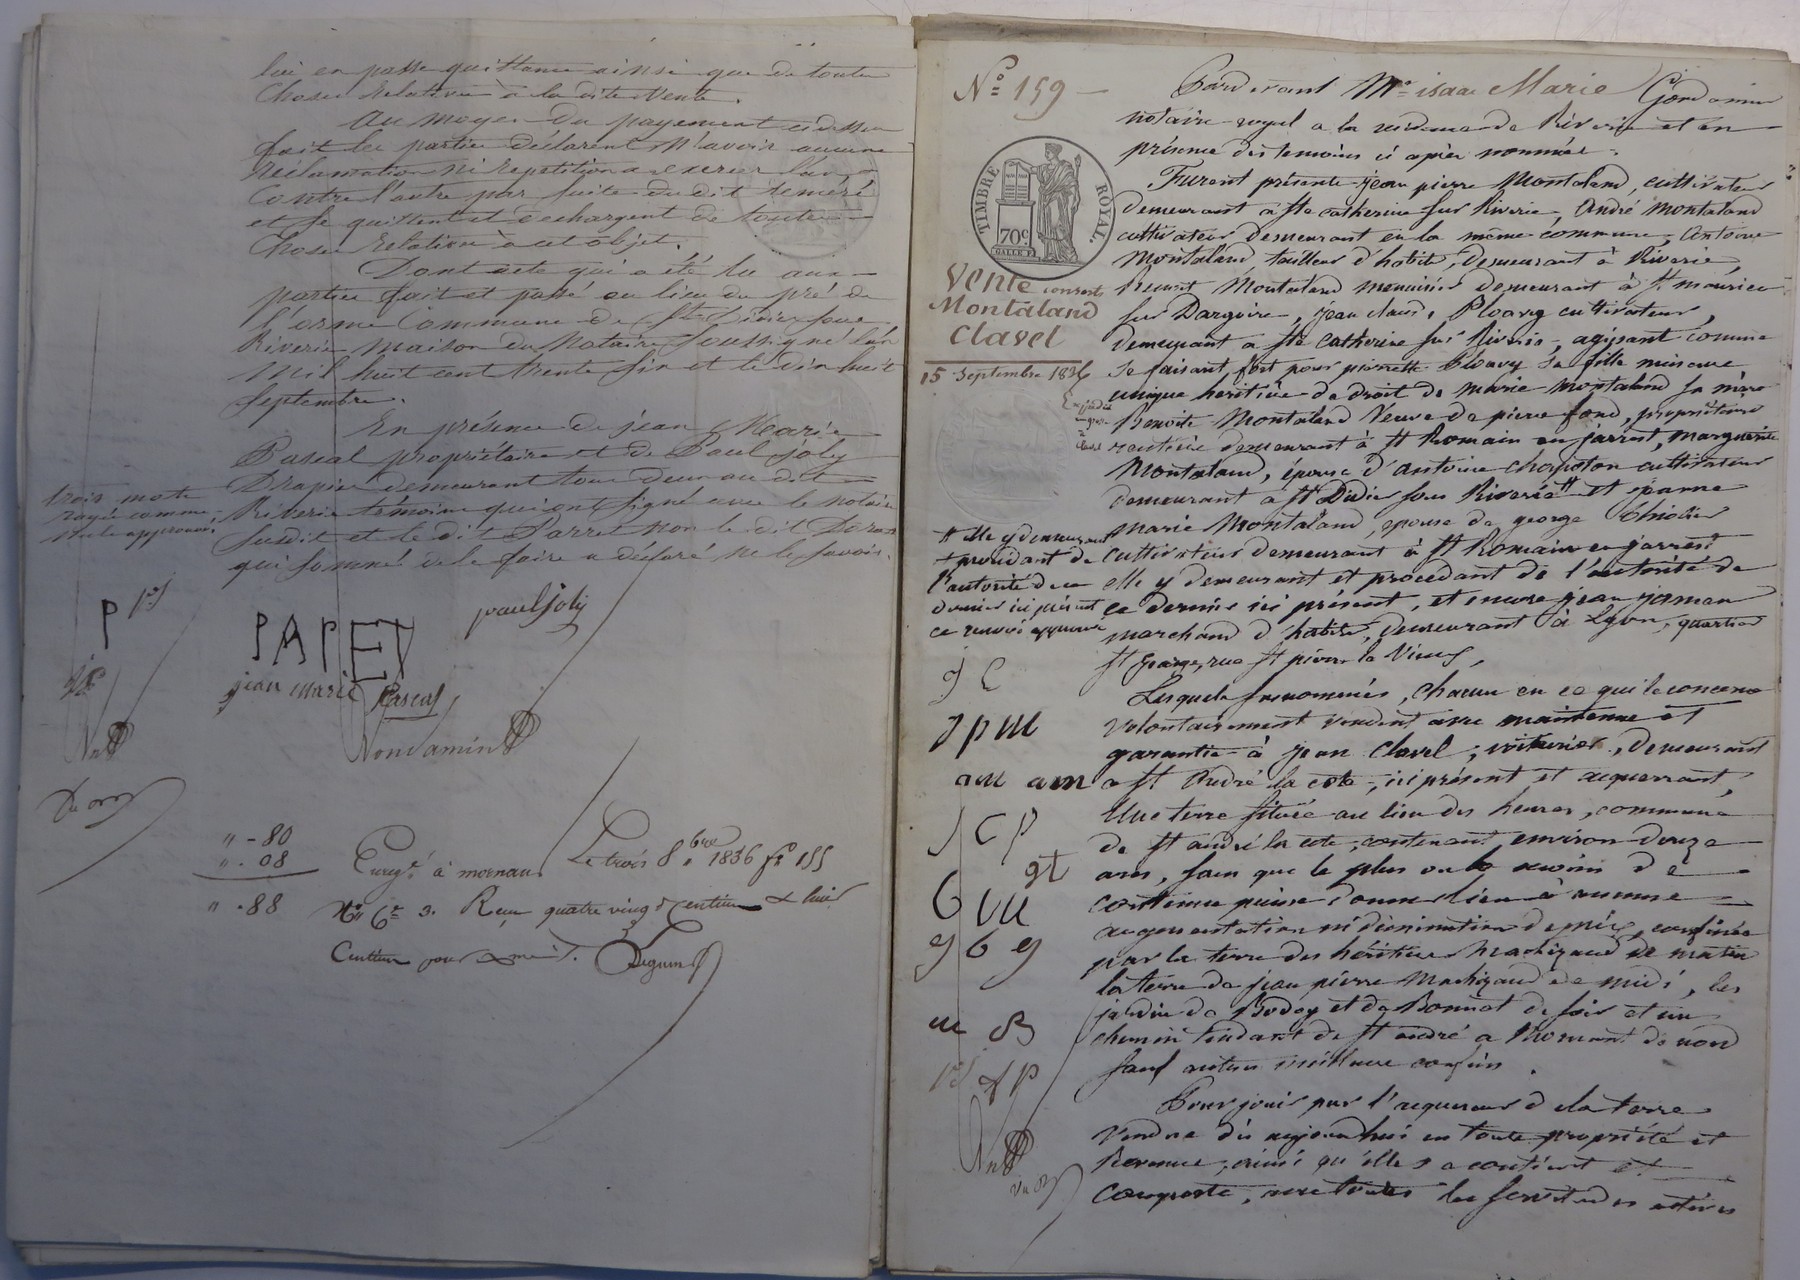 lui en passe quittance ainsi que de toutes
choses relatives à la dite vente.
Au moyen du payement ci dessus
fait les parties déclarent n'avoir aucune
réclamation ni repetition a exercer l'un
contre l'autre par suite du dit réméré
et se quittent et déchargent de toutes
choses relatives à cet objet.
Dont acte qui a été lu aux
parties fait et passé au lieu du pré de
l'orme commune de St Didier sous
Riverie maison du Notaire soussigné l'an
mil huit cent trente six et le dix huit
septembre.
En présence de jean Marie
Pascal propriétaire et de Paul Joly
Drapier demeurant tous deux au dit
Riverie témoins qui ont signé avec le notaire
susdit et le dit non le dit
qui sommé de le faire a déclaré ne le savoir.
trois mots
rayés comme
nuls approuvés
P
PAPET
paul joly
jean marie Pascal
" - 80
" . 08
" . 88
Enreg.é à mornant Le trois 8.bre 1836 f.o 155
R.o C.e 3. Reçu quatre vingt centimes & huit
centimes pour
N.o 159
TIMBRE ROYAL
70c
Vente consorts
Montaland
Clavel
15 Septembre 1836
Pardevant M.e isaac Marie Condamin
notaire royal a la residence de Riverie et en
présence des temoins ci après nommés.
Furent présents jean pierre Montaland, cultivateur
demeurant à Ste catherine sur Riverie, André Montaland
cultivateur demeurant en la même commune, Antoine
Montaland tailleur d'habits, demeurant à Riverie,
Benoit Montaland menuisier demeurant à St maurice
sur Dargoire, jean claude cultivateur,
demeurant a Ste Catherine sur Riverie, agissant comme
se faisant fort pour pierrette sa fille mineure
unique héritière de droit de marie montaland sa mère
Benoite Montaland Veuve de pierre fond, propriétaire
rentière demeurant à St Romain en jarrest, marguerite
Montaland, épouse d'antoine chapoton cultivateur
demeurant a St Didier sous Riverie # et jeanne
marie Montaland, épouse de george
cultivateur demeurant à St Romain en jarrest
elle y demeurant et procédant de l'autorité de
ce dernier ici présent, et encore jean
marchand d'habits, demeurant à Lyon, quartier
St George, rue St pierre le Vieux,
# elle y demeurant
et procédant de
l'autorité de ce
dernier ici présent
ce renvoi approuvé
Lesquels prenommés, chacun en ce qui le concerne
volontairement vendent avec maintenue et
garantie à jean clavel, voiturier, demeurant
a St André la cote, ici présent et acquerrant,
Une terre située au lieu des heures, commune
de St andré la cote, contenant environ douze
ares, sans que le plus ou le moins de
contenue puisse donner lieu à aucune
augmentation ni diminution de prix, confinée
par la terre des héritiers Machizaud de matin
la terre de jean pierre Machizaud de midi, les
jardin de Boday et de Bonnet de soir et un
chemin tendant de St andré a Mornant de nord
sauf autres meilleurs confins.
Pour jouir par l'acquereur de la terre
vendue dès aujourdhui en toute propriété et
Revenue, ainsi qu'elle se contient et
comporte, avec toutes les servitudes actives
g C
J p M
am am
J C P
gt
B VM
g b g
m B
P